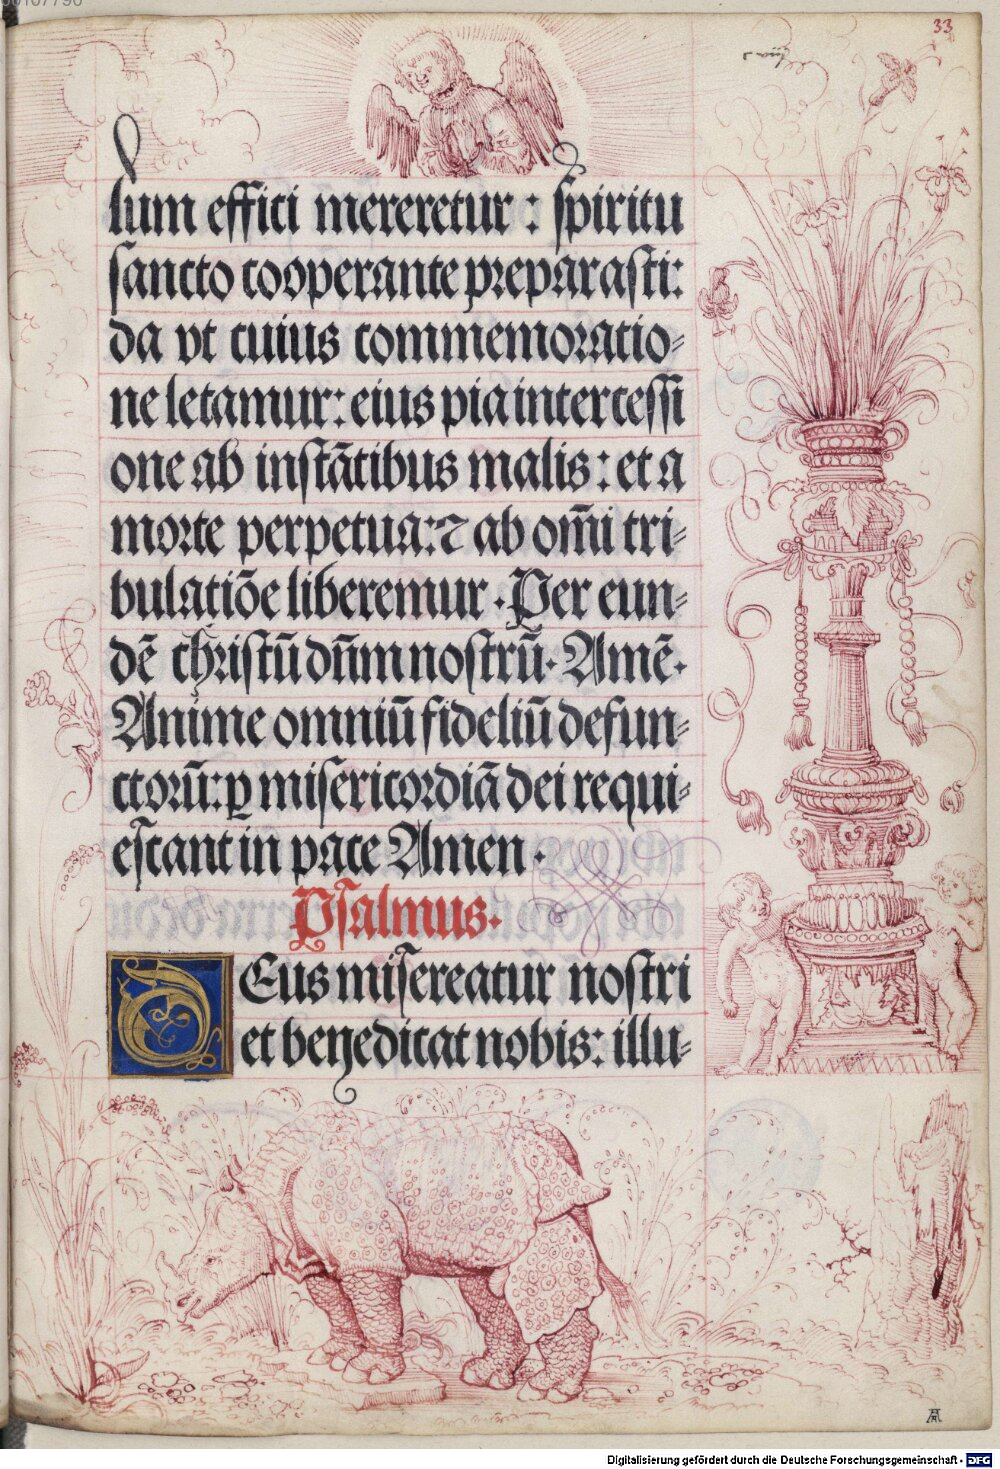 33
lum effici mereretur : spiritu
sancto cooperante preparasti:
da vt cuius commemoratio-
ne letamur: eius pia intercessi
one ab instātibus malis: et a
morte perpetua: ⁊ ab om̄i tri-
bulatiōe liberemur. Per eun-
dē christū dn̄m nostrū. Amē.
Anime omniū fideliū defun-
ctorū: ꝑ misericordiā dei requi-
escant in pace Amen.
Psalmus.
DEus misereatur nostri
et benedicat nobis: illu-
Digitalisierung gefördert durch die Deutsche Forschungsgemeinschaft - DFG